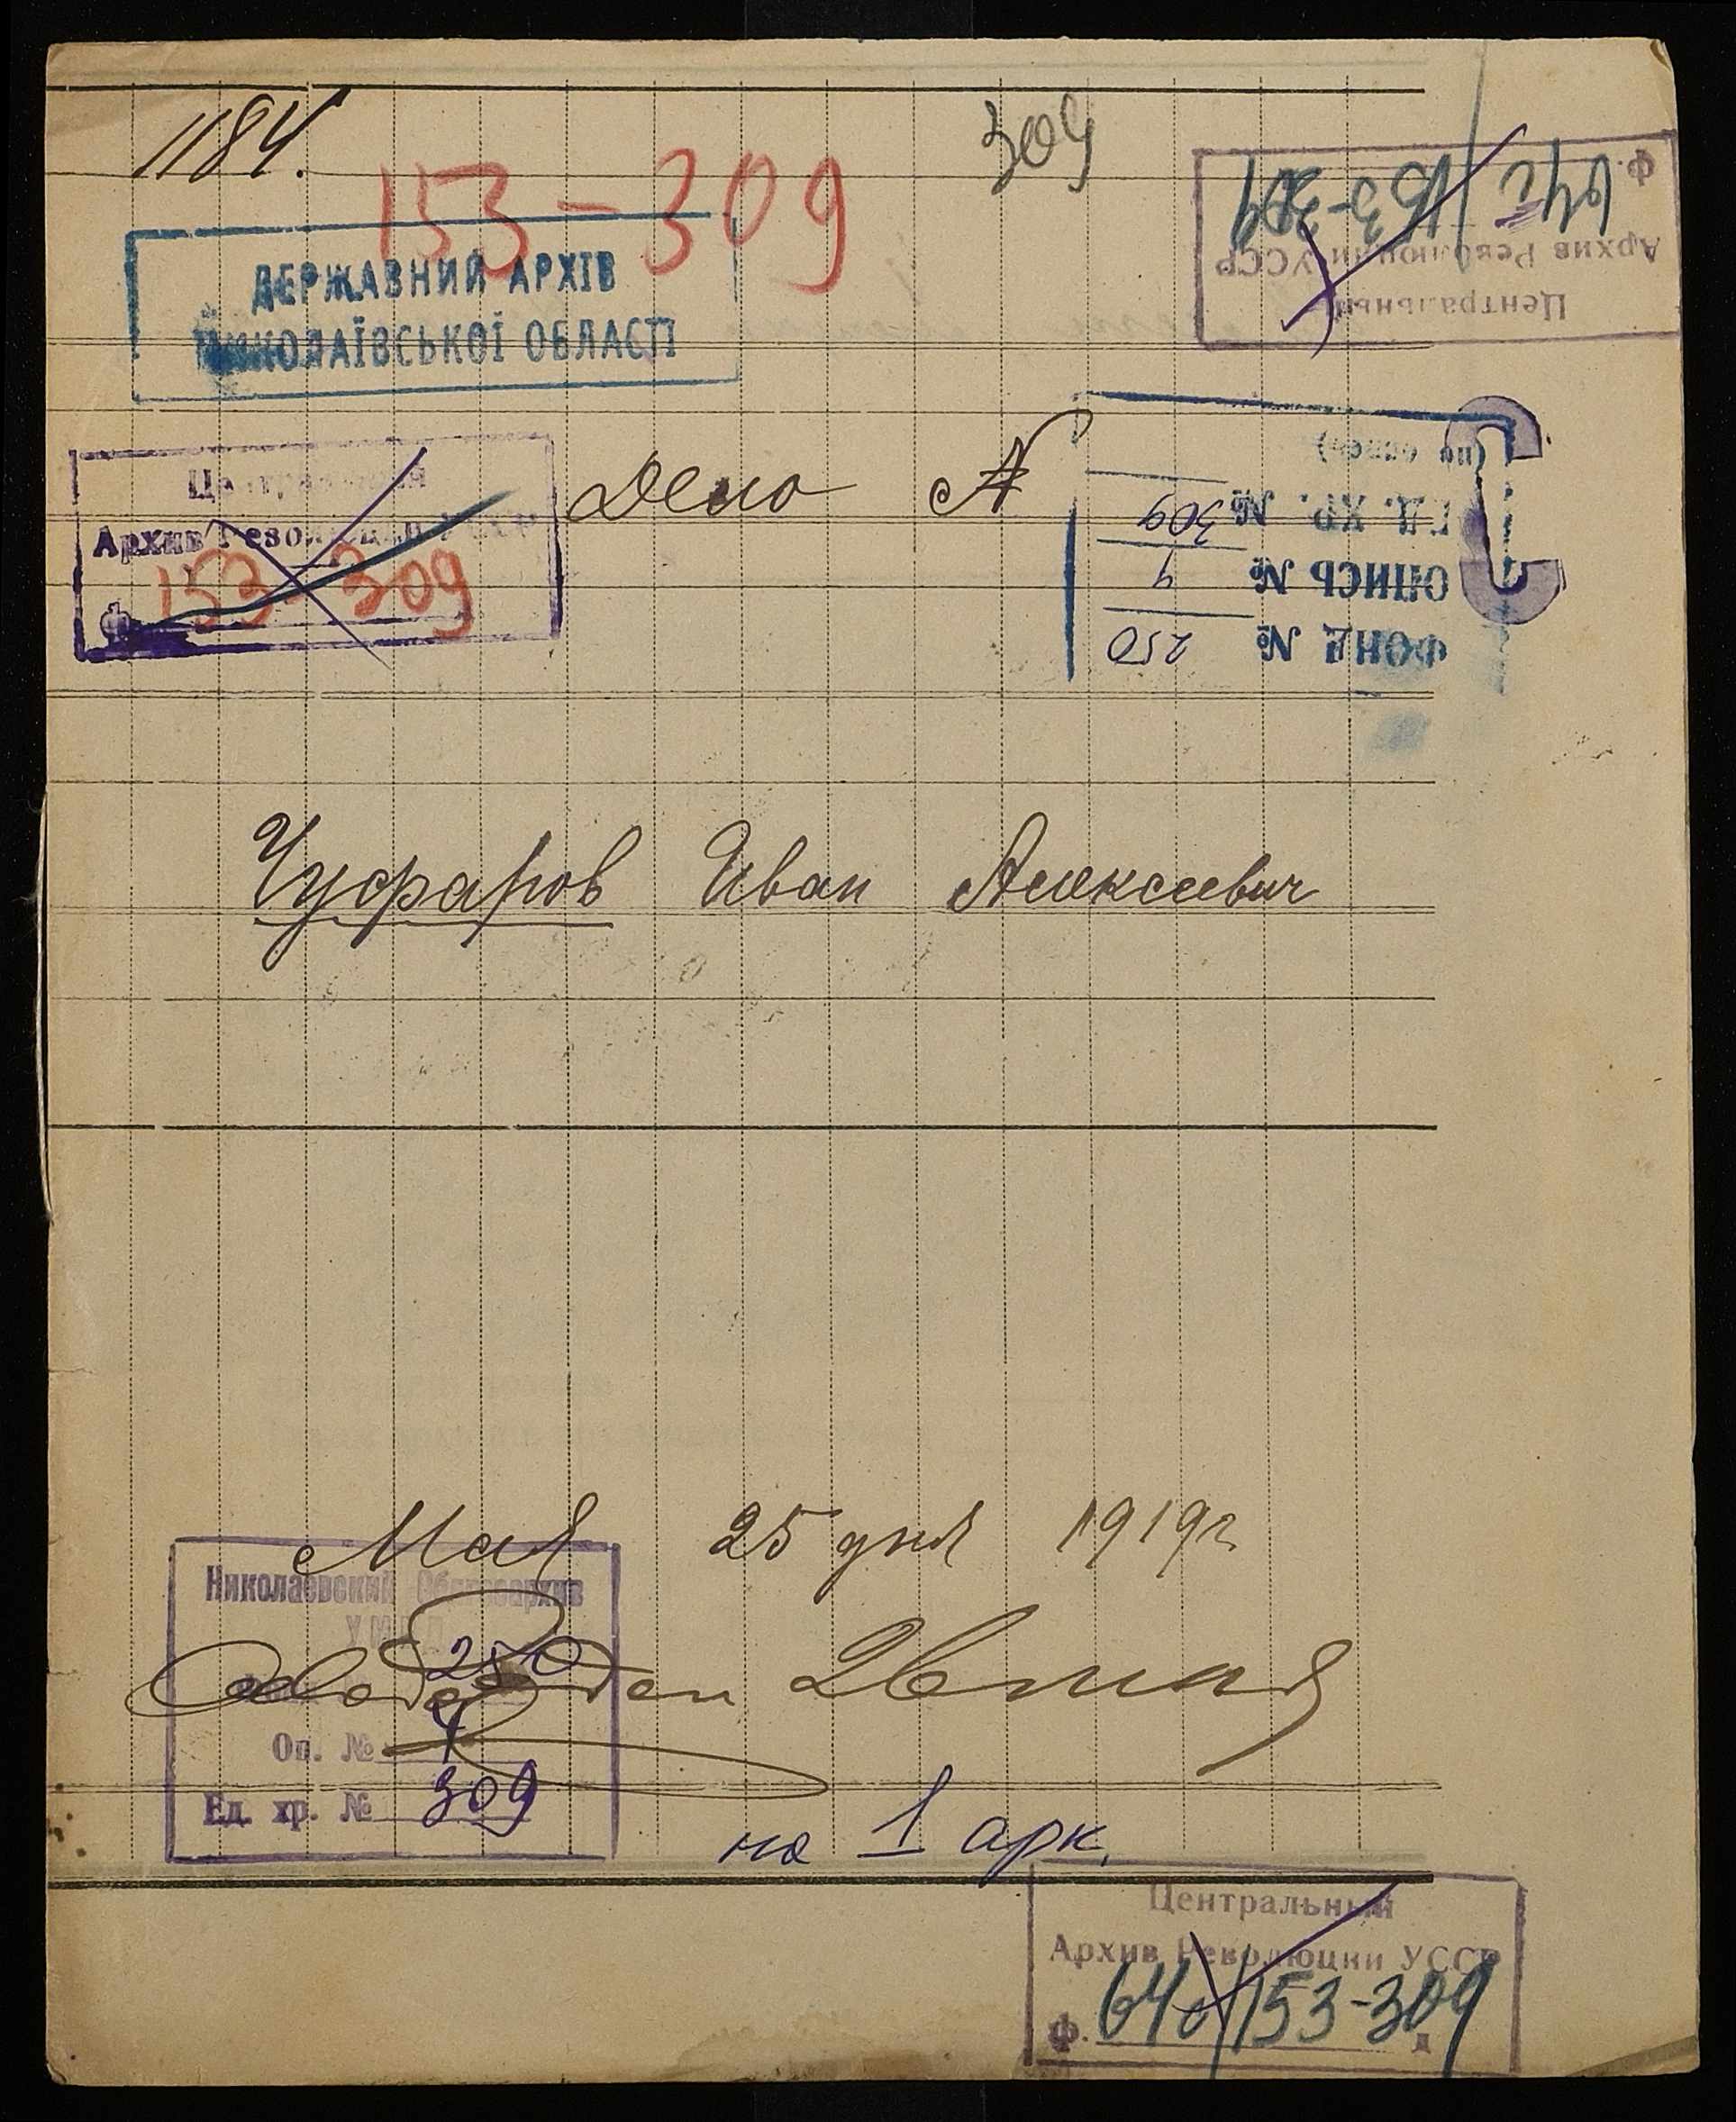 1184.
153-309
309
ДЕРЖАВНИЙ АРХІВ
МИКОЛАЇВСЬКОЇ ОБЛАСТІ
Центральный
Архив Революции УССР
Ф. 153-309
Центральный
Архив Революции УССР
Ф. 153-309
Дело №
ФОНД № 250
ОПИСЬ № 4
ЕД. ХР. № 309
(по описи)
Чуфаров Иван Алексеевич
Мая 25 дня 1919г.
Николаевский Облгосархив
250
Оп. № 4
Ед. хр. № 309
26 мая
на 1 арк.
Центральный
Архив Революции УССР
ф. 153-309 д